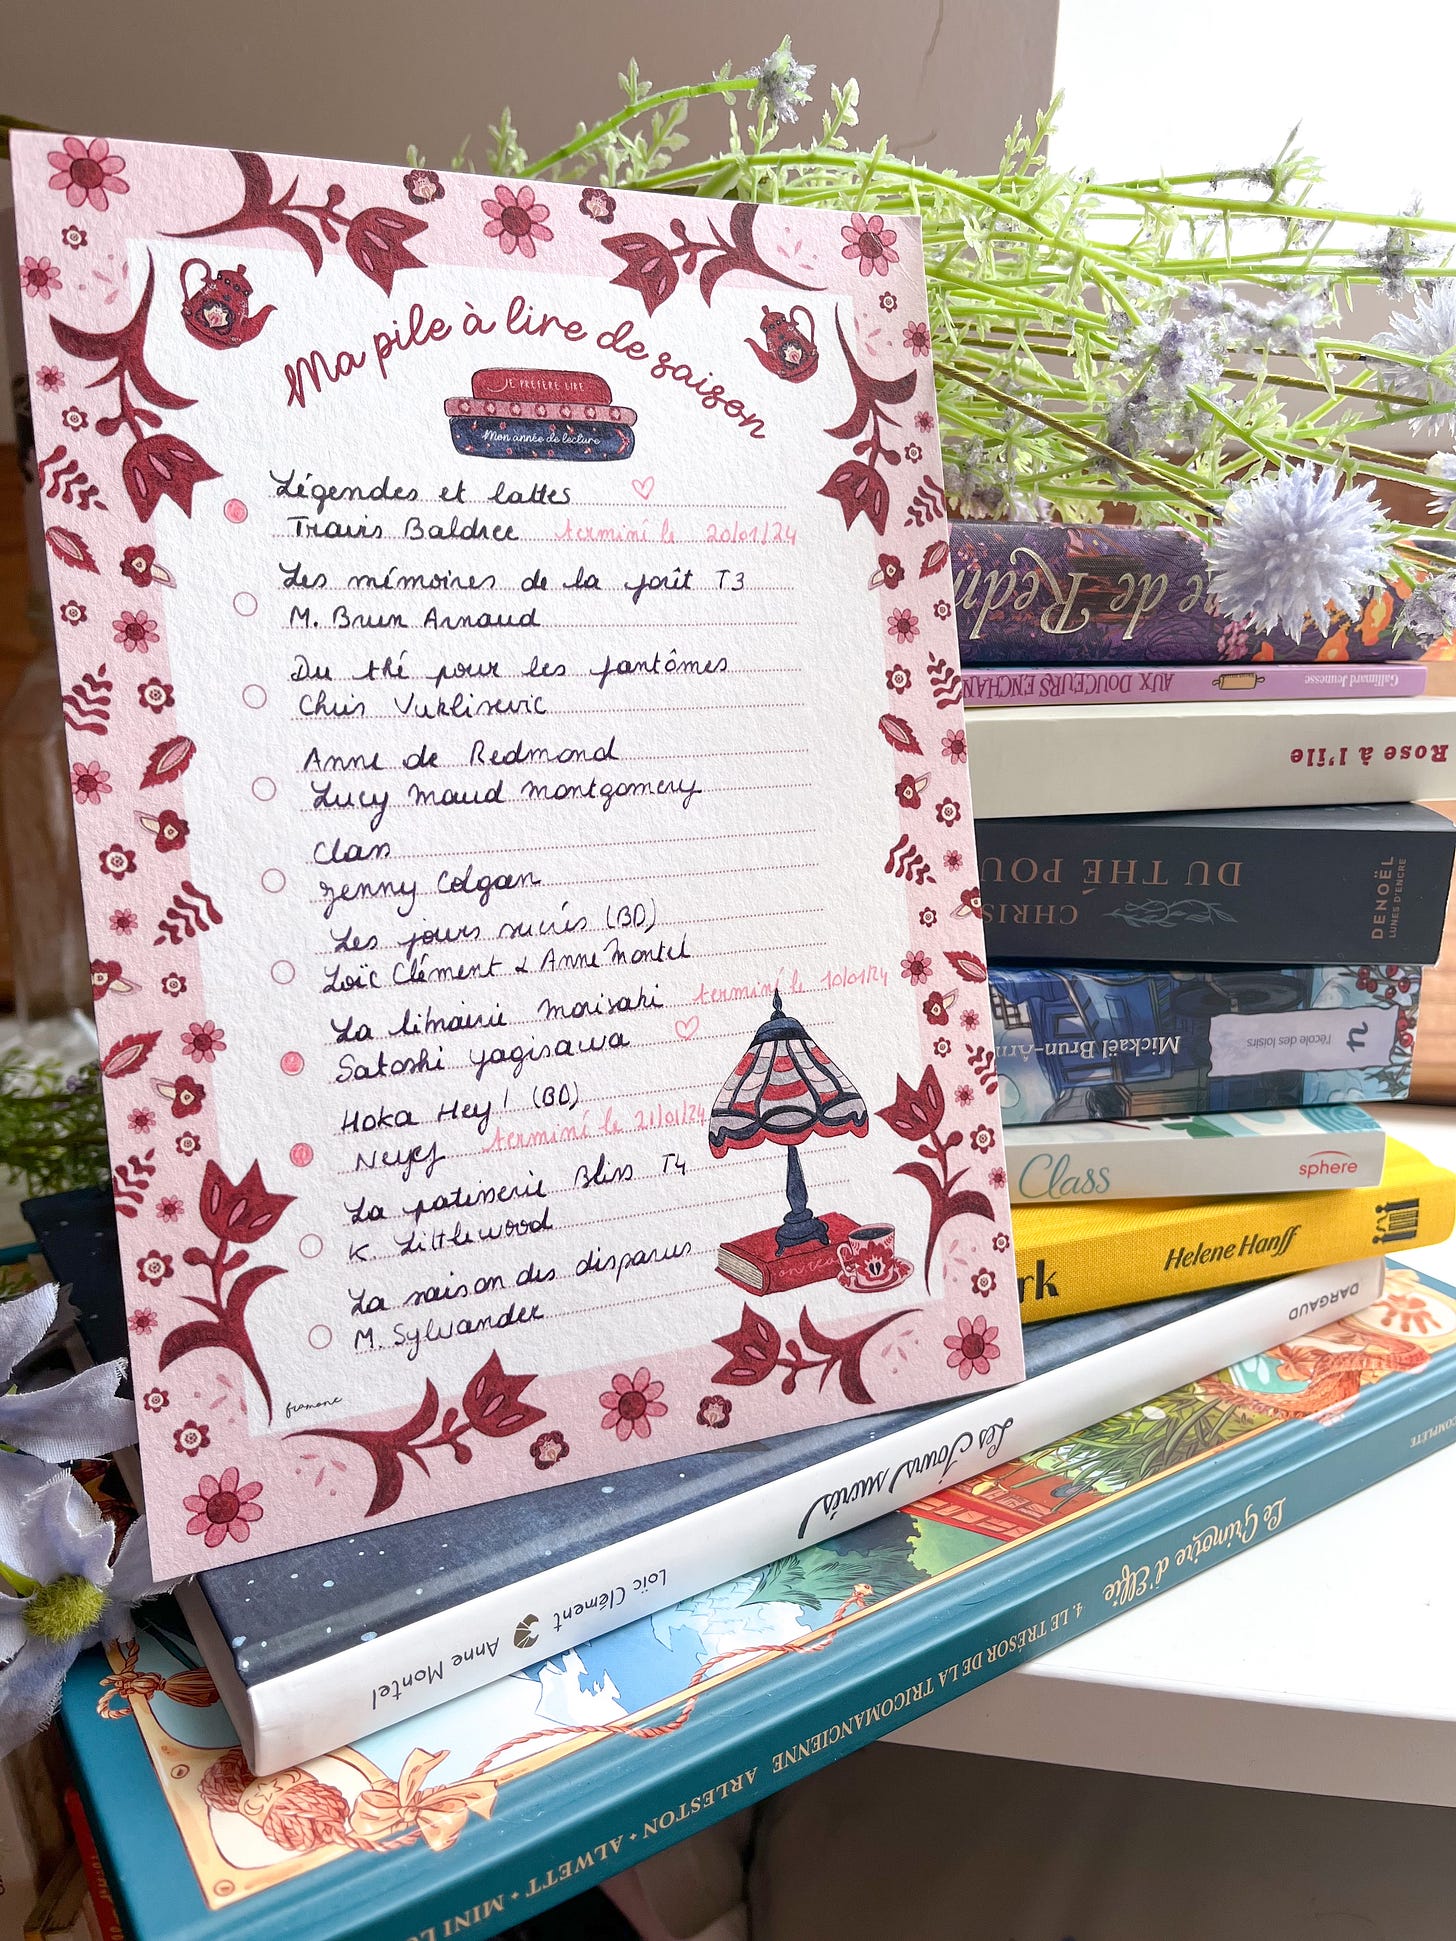 Ma pile à lire de saison
JE PRÉFÈRE LIRE
Mon année de lecture
Légendes et lattes
Travis Baldree terminé le 20/01/24
Les mémoires de la forêt T3
M. Brun Arnaud
Du thé pour les fantômes
Chris Vuklisevic
Anne de Redmond
Lucy Maud Montgomery
Class
Jenny Colgan
Les jours sucrés (BD)
Loïc Clément & Anne Montel
La librairie Morisaki terminé le 10/01/24
Satoshi Yagisawa
Hoka Hey! (BD)
Neyef terminé le 21/01/24
La patisserie Bliss T4
K. Littlewood
La saison des disparus
M. Sylvander
framone
de Redm
AUX DOUCEURS ENCHAN
Gallimard Jeunesse
Rose à l'île
DU THÉ POU
CHRIS
DENOËL
LUNES D'ENCRE
Mickaël Brun-Arn
l'école des loisirs
Class
sphere
rk Helene Hanff
DARGAUD
Les Jours sucrés
Loïc Clément Anne Montel
Le Grimoire d'Elfie
4. LE TRÉSOR DE LA TRICOMANCIENNE
ARLESTON • ALWETT • MINI L
COMPLÈTE